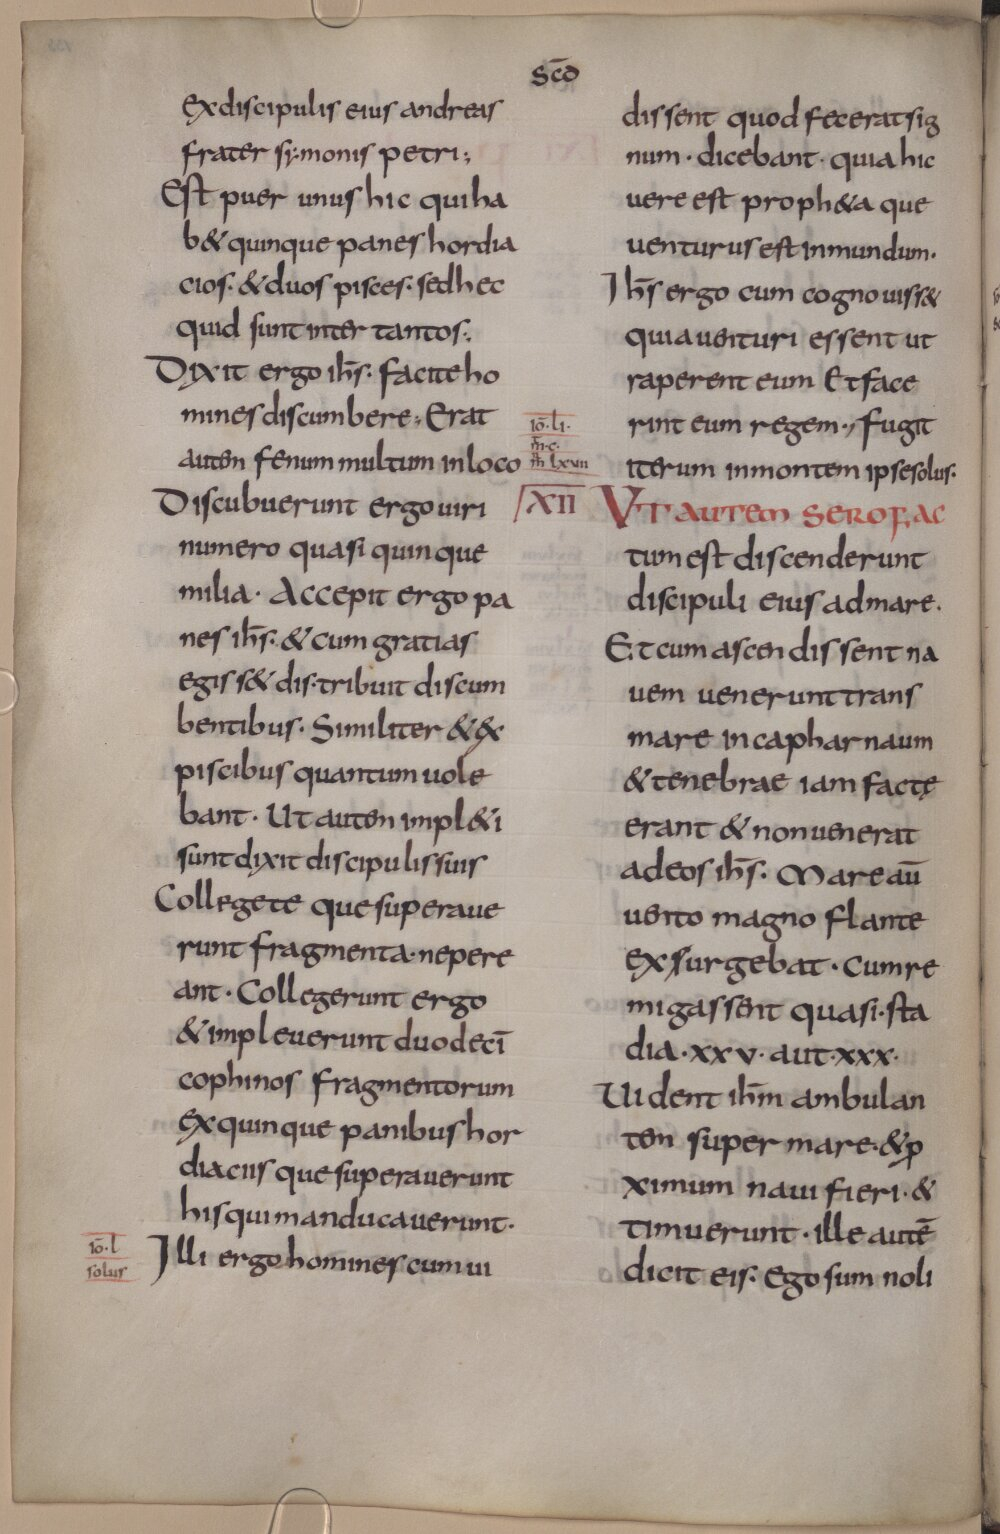 sc̄d
exdiscipulis eius andreas
frater sy·monis petri·,
Est puer unus hic qui ha
b& quinque panes hordia
cios· & duos pisces· sed hec
quid sunt inter tantos·,
Dixit ergo ih̄s· facite ho
mines discumbere·, Erat
autem fenum multum in loco
Discubuerunt ergo uiri
numero quasi quinque
milia· Accepit ergo pa
nes ih̄s· & cum gratias
egiss& dis·tribuit discum
bentibus· Similiter & ex
piscibus quantum uole
bant· Ut autem impl&i
sunt dixit discipulis suis
Collegete que superaue
runt fragmenta· nepere
ant· Collegerunt ergo
& impleuerunt duodecī
cophinos fragmentorum
ex quinque panibus hor
diaciis que superauerunt
his qui manducauerunt·
iō·l
solus
Illi ergo homines cum ui
dissent quod fecerat sig
num· dicebant· quia hic
uere est proph&a que
uenturus est in mundum·
Ih̄s ergo cum cognouiss&
quia uenturi essent ut
raperent eum Et face
rint eum regem·, Fugit
iō·li·
m̄·c·
iterum in montem ipse solus·
XII
Ut autem sero fac
tum est discenderunt
discipuli eius ad mare·
Et cum ascendissent na
uem uenerunt trans
mare in capharnaum
& tenebrae iam factę
erant & non uenerat
ad eos ih̄s· Mare aū
uento magno flante
exsurgebat· Cum re
migassent quasi· sta
dia· xxv· aut· xxx·
Uident ih̄m ambulan
tem super mare· & ꝓ
ximum naui fieri· &
timuerunt· ille autē
dicit eis· Ego sum noli